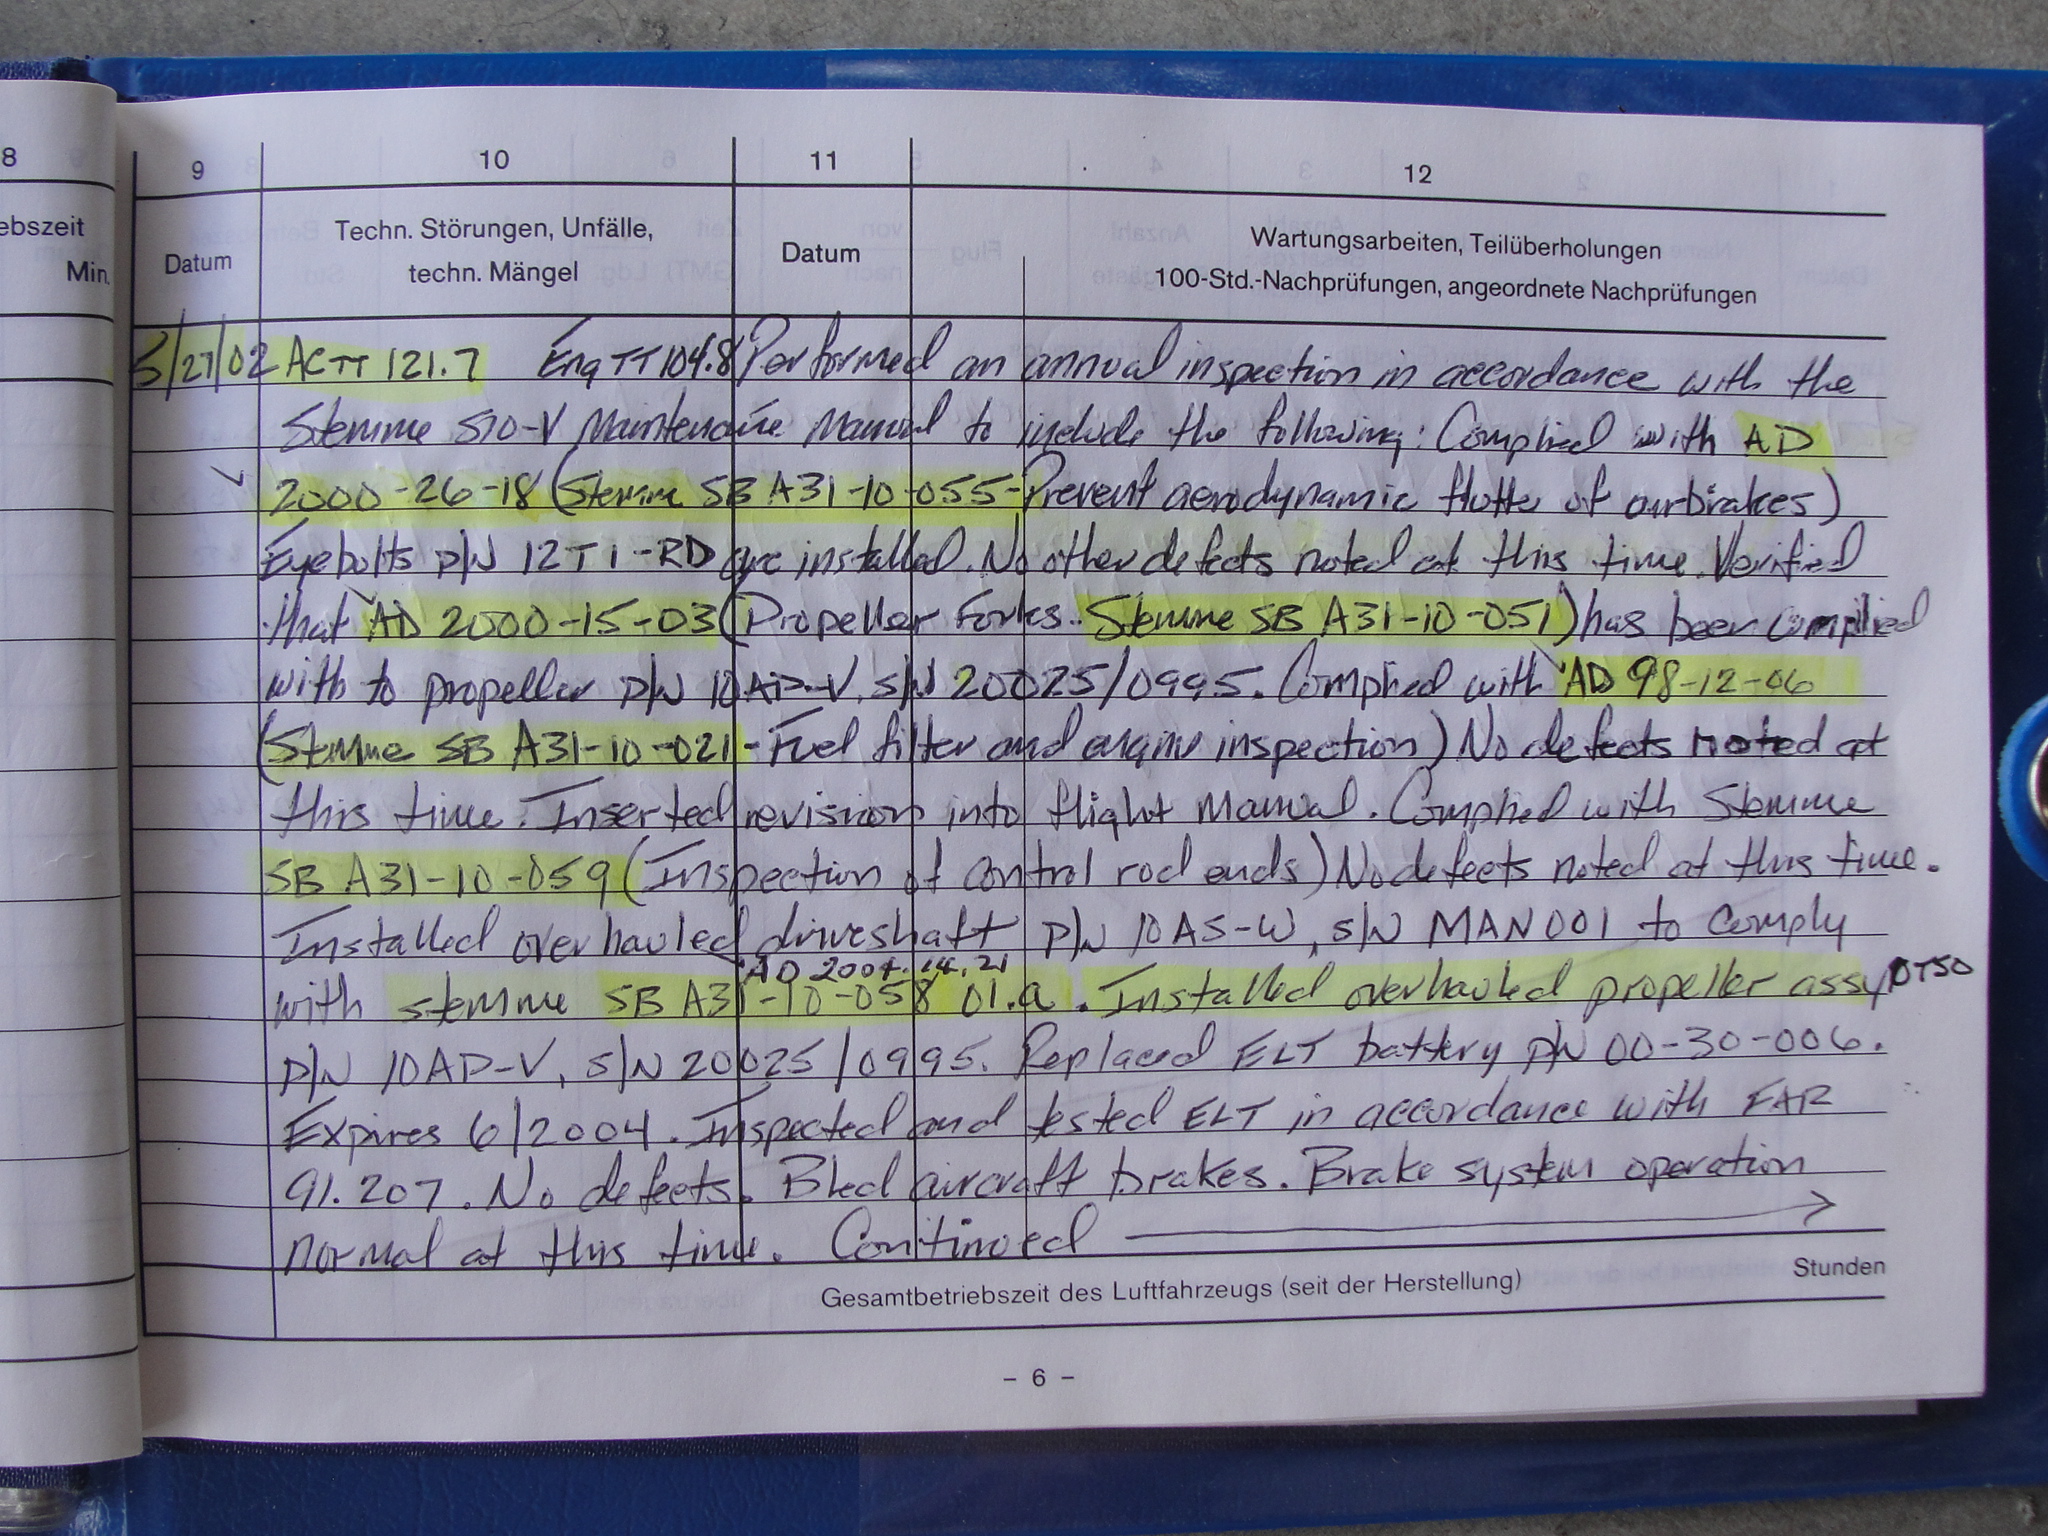 8
9
10
11
12
ebszeit
Min.
Datum
Techn. Störungen, Unfälle,
techn. Mängel
Datum
Wartungsarbeiten, Teilüberholungen
100-Std.-Nachprüfungen, angeordnete Nachprüfungen
5/27/02 ACTT 121.7 Eng TT 104.8 Performed an annual inspection in accordance with the
Stemme S10-V Maintenance Manual to include the following: Complied with AD
2000-26-18 (Stemme SB A31-10-055-Prevent aerodynamic flutter of airbrakes)
Eyebolts P/N 12T1-RD are installed. No other defects noted at this time. Verified
that AD 2000-15-03 (Propeller Forks. Stemme SB A31-10-051) has been complied
with to propeller P/N 10AP-V, S/N 20025/0995. Complied with AD 98-12-06
(Stemme SB A31-10-021-Fuel filter and engine inspection) No defects noted at
this time. Inserted revision into flight Manual. Complied with Stemme
SB A31-10-059 (Inspection of control rod ends) No defects noted at this time.
Installed overhauled driveshaft P/N 10AS-W, S/N MAN001 to comply
AD 2001.14.21
with stemme SB A31-10-058 01.a. Installed overhauled propeller assy 0TSO
P/N 10AP-V, S/N 20025/0995. Replaced ELT battery P/N 00-30-006.
Expires 6/2004. Inspected and tested ELT in accordance with FAR
91.207. No defects. Bled aircraft brakes. Brake system operation
normal at this time. Continued
Gesamtbetriebszeit des Luftfahrzeugs (seit der Herstellung)
Stunden
- 6 -